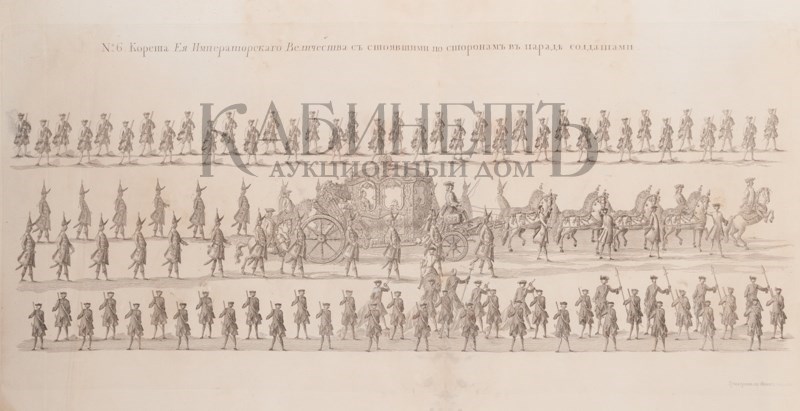 № 6 Корета Ея Императорскаго Величества съ стоявшими по сторонамъ въ параде солдатами
КАБИНЕТЪ
АУКЦИОННЫЙ ДОМ